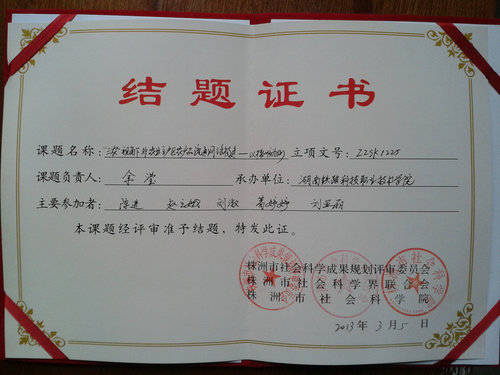 结题证书
课题名称： 立项文号： ZZSK1225
课题负责人： 余滢 承办单位： 湖南铁路科技职业技术学院
主要参加者： 陈进 赵云娥 刘淑 葛婷婷 刘亚丽
本课题经评审准予结题，特发此证。
株洲市社会科学成果规划评审委员会
株洲市社会科学界联合会
株洲市社会科学院
2013年3月5日